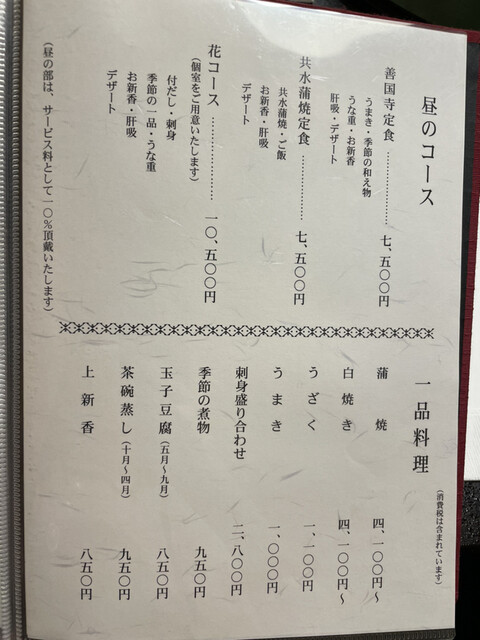 昼のコース
善国寺定食 ………… 七、五〇〇円
うまき・季節の和え物
うな重・お新香
肝吸・デザート
共水蒲焼定食 ………… 七、五〇〇円
共水蒲焼・ご飯
お新香・肝吸
デザート
花コース ………… 一〇、五〇〇円
(個室をご用意いたします)
付だし・刺身
季節の一品・うな重
お新香・肝吸
デザート
(昼の部は、サービス料として一〇%頂戴いたします)
一品料理
(消費税は含まれています)
蒲焼 四、一〇〇円〜
白焼き 四、一〇〇円〜
うざく 一、一〇〇円
うまき 一、〇〇〇円
刺身盛り合わせ 二、八〇〇円
季節の煮物 九五〇円
玉子豆腐(五月〜九月) 八五〇円
茶碗蒸し(十月〜四月) 九五〇円
上新香 八五〇円